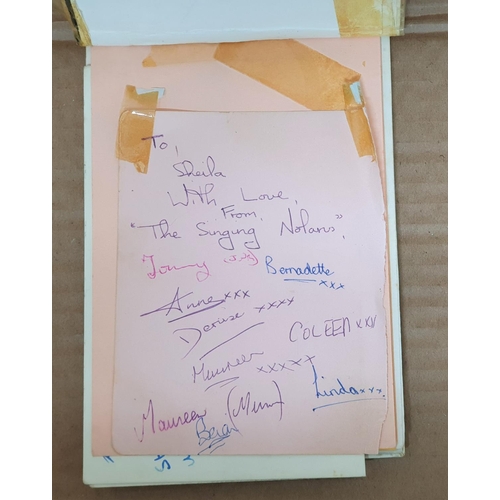 To,
Sheila
With Love,
From,
"The Singing Nolans".
Tommy
Bernadette xxx
Anne xxx
Denise xxxx
COLEEN xxx
Maureen xxxxx
Linda xxx.
Maureen (Mum)
Brian